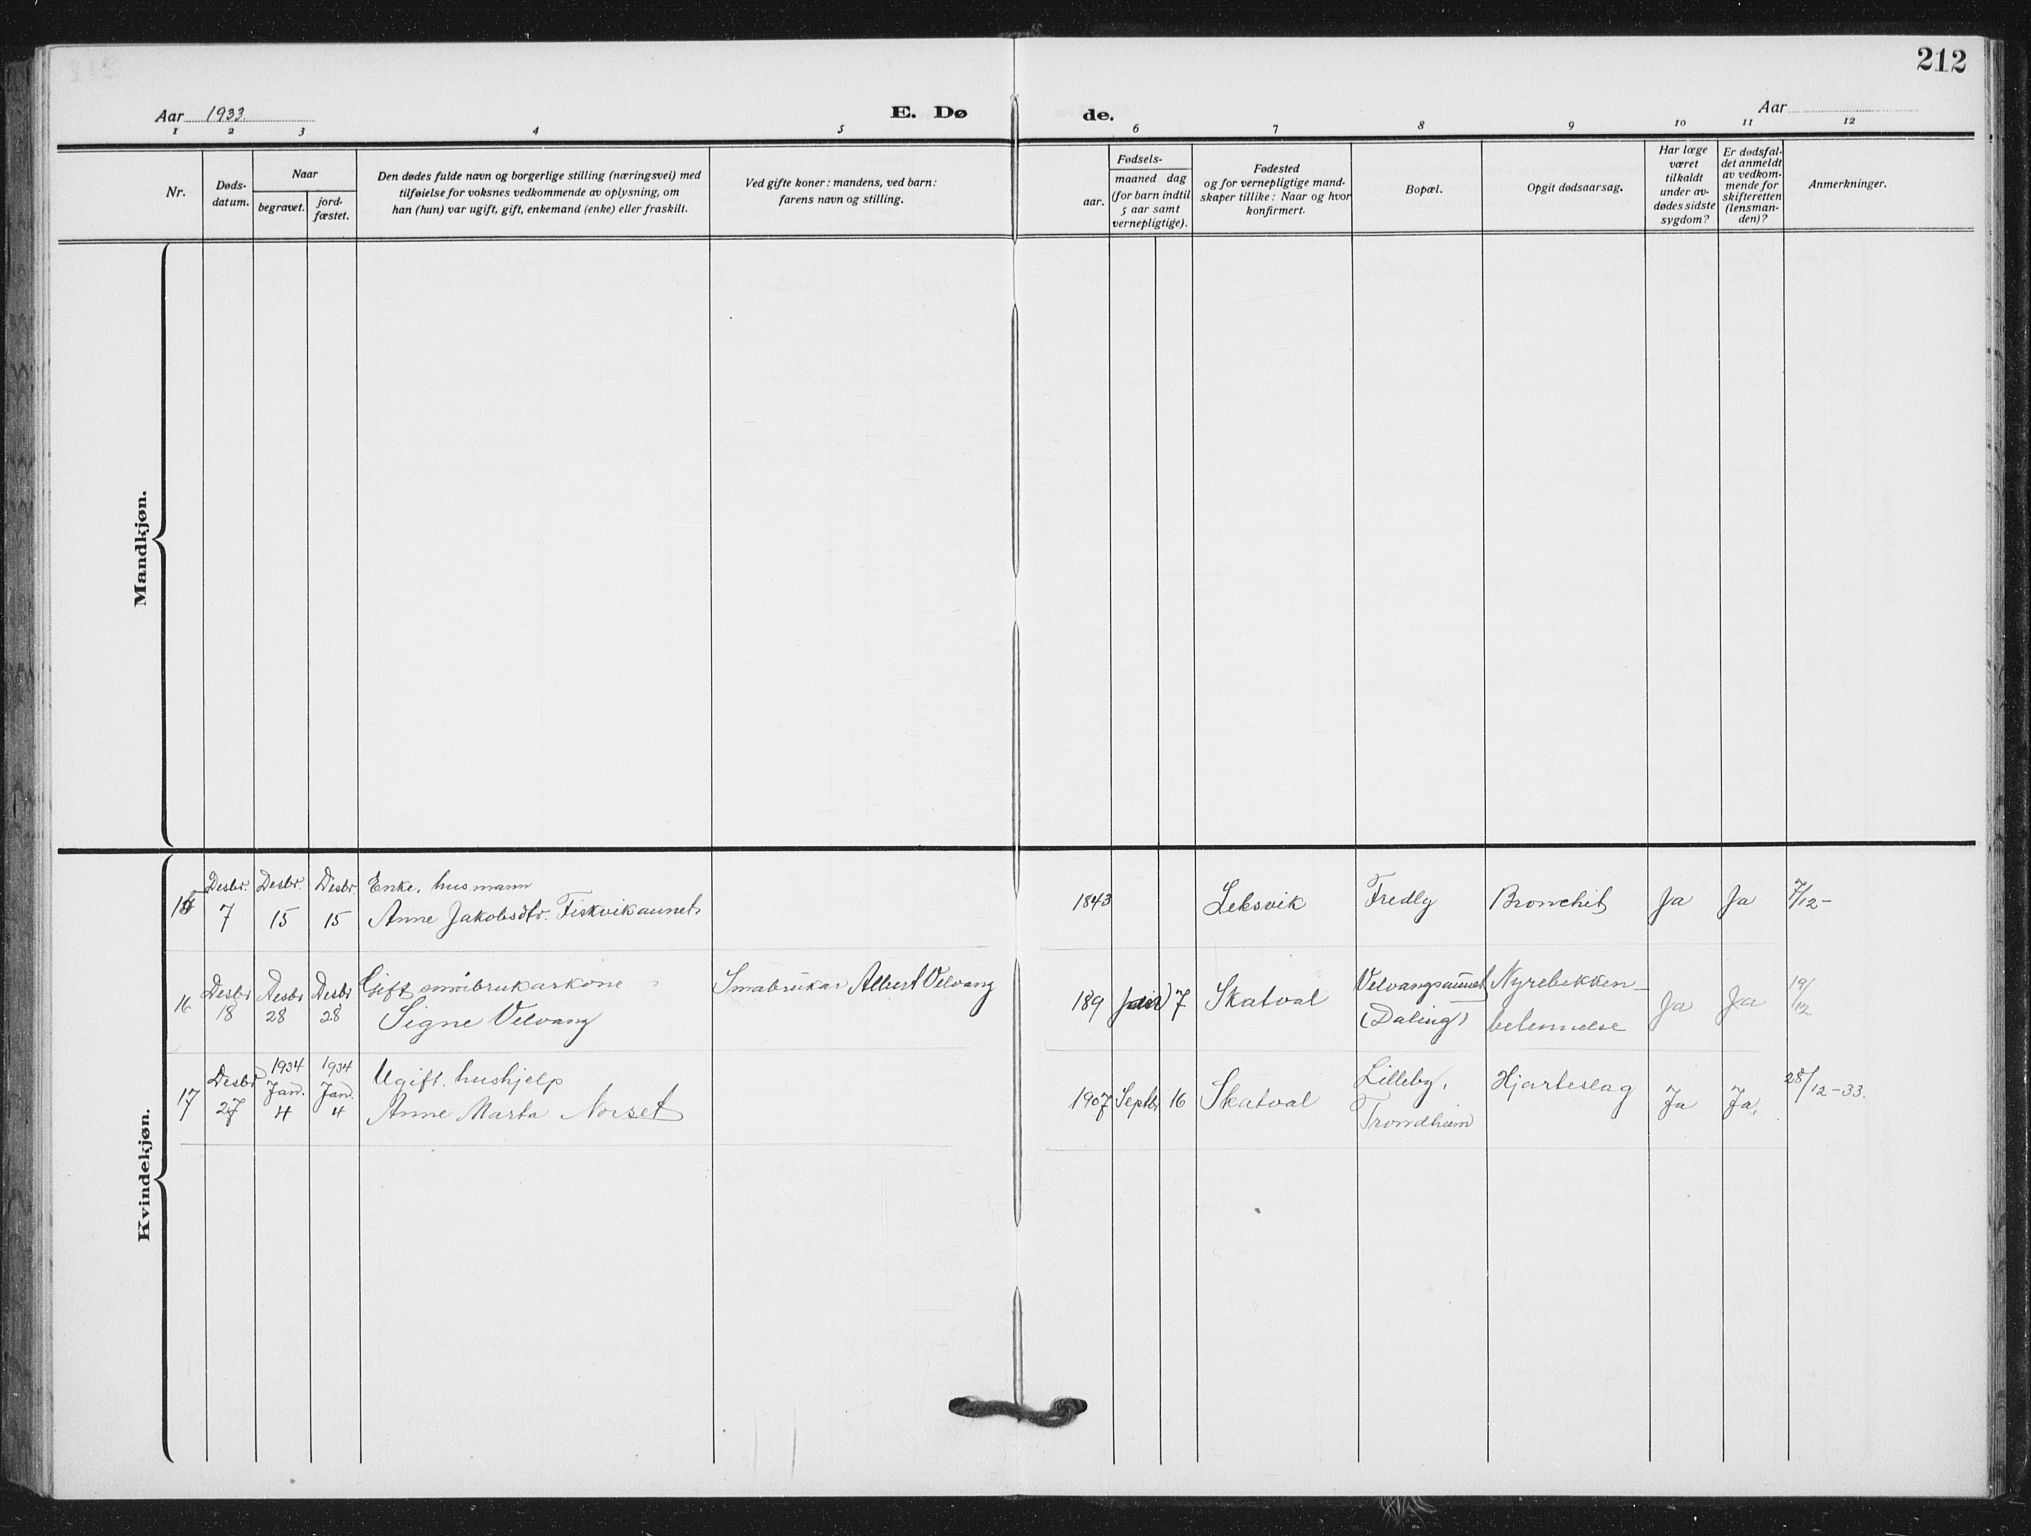 212
Aar 1933.
E. Døde.
Aar
1 2 3 4 5 6 7 8 9 10 11 12
Nr.
Døds-
datum.
Naar
begravet.
jord-
fæstet.
Den dødes fulde navn og borgerlige stilling (næringsvei) med
tilføielse for voksnes vedkommende av oplysning, om
han (hun) var ugift, gift, enkemand (enke) eller fraskilt.
Ved gifte koner: mandens, ved barn:
farens navn og stilling.
Fødsels-
aar.
maaned dag
(for barn indtil
5 aar samt
vernepligtige).
Fødested
og for vernepligtige mand-
skaper tillike: Naar og hvor
konfirmert.
Bopæl.
Opgit dødsaarsag.
Har læge
været
tilkaldt
under av-
dødes sidste
sygdom?
Er dødsfal-
det anmeldt
av vedkom-
mende for
skifteretten
(lensman-
den)?
Anmerkninger.
Mandkjøn.
Kvindekjøn.
15 Desbr. 7 Desbr. 15 Desbr. 15 Enke, husmann
Anne Jakobsdtr. Fiskvikaunet 1843 Leksvik Fredly Bronchit Ja Ja 7/12-
16 Desbr 18 Desbr 28 Desbr 28 Gift småbrukarkone
Signe Velvang Småbrukar Albert Velvang 189 7 Skatval Velvangsaunet
(Daling) Nyrebekken-
betennelse Ja Ja 19/12
17 Desbr 27 1934 Jan. 4 1934 Jan. 4 Ugift, hushjelp
Anne Marta Norset 1907 Septbr 16 Skatval Lilleby,
Trondheim Hjarteslag Ja Ja. 28/12-33.